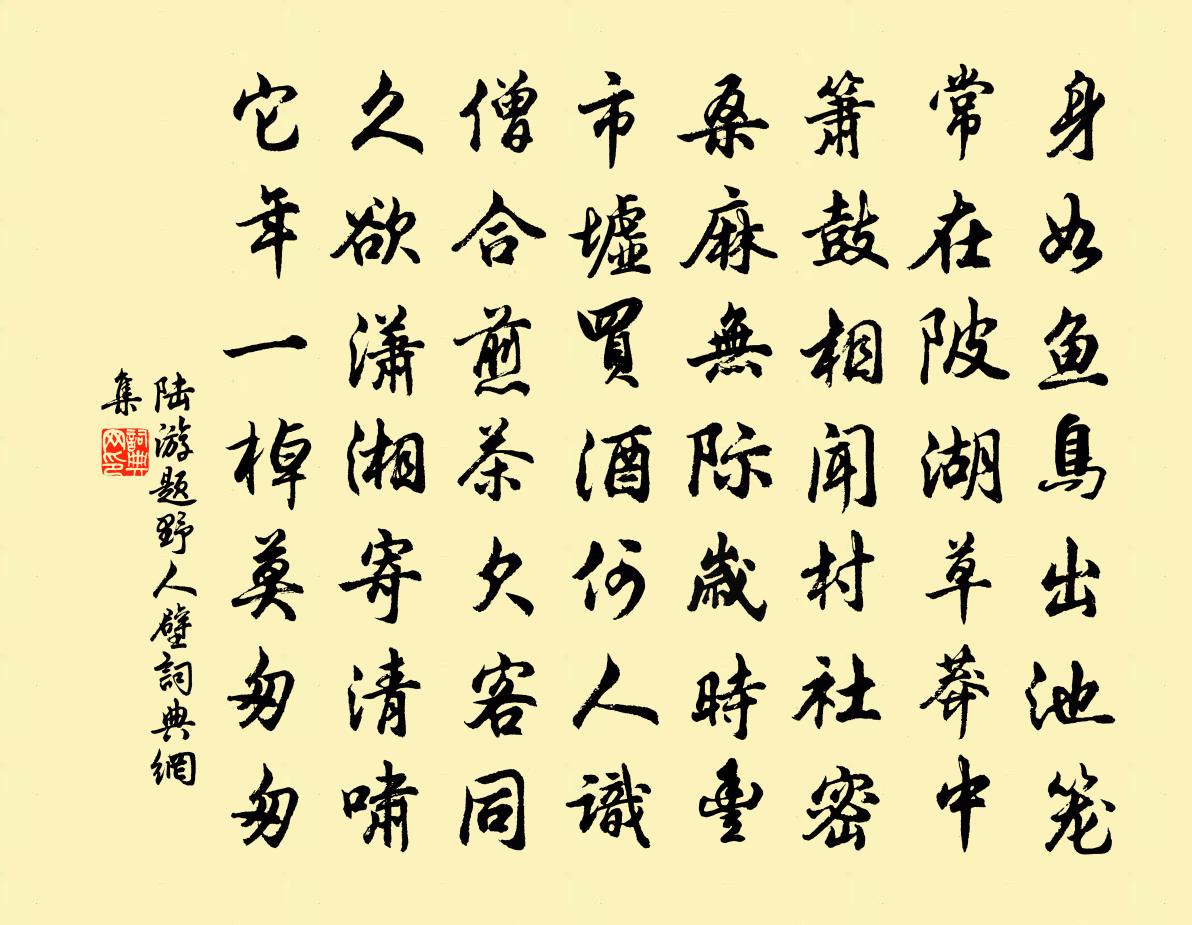 身如鱼鳥出池笼
常在陂湖草莽中
箫鼓相闻村社密
桑麻無际歲時豊
市墟買酒何人識
僧合煎茶欠客同
久欲瀟湘寄清嘯
它年一棹莫匆匆
陆游题野人壁詞典網
集
詞典网印